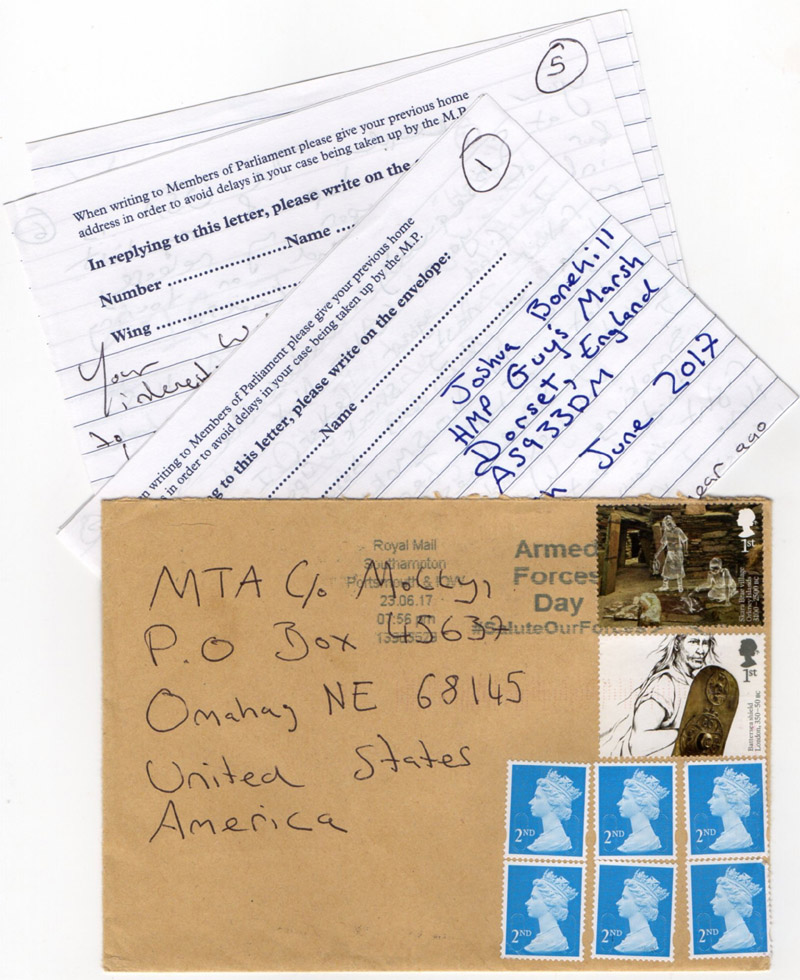 5
When writing to Members of Parliament please give your previous home
address in order to avoid delays in your case being taken up by the M.P.
In replying to this letter, please write on the
Number ........................Name ...
Wing ..............................
Your
interest.
to
1
writing to Members of Parliament please give your previous home
in order to avoid delays in your case being taken up by the M.P.
to this letter, please write on the envelope:
Name ..............................
Joshua Bonehill
HMP Guy's Marsh
Dorset, England
June 2017
year ago
MTA C/o
P.O Box 45637
Omaha, NE 68145
United States
America
Royal Mail
Southampton
Portsmouth & IOW
23.06.17
07:56 pm
Armed
Forces
Day
#SaluteOurForces
1st
Skara Brae village
Orkney Islands
1st
Battersea shield
London, 350–50 BC
2ND
2ND
2ND
2ND
2ND
2ND